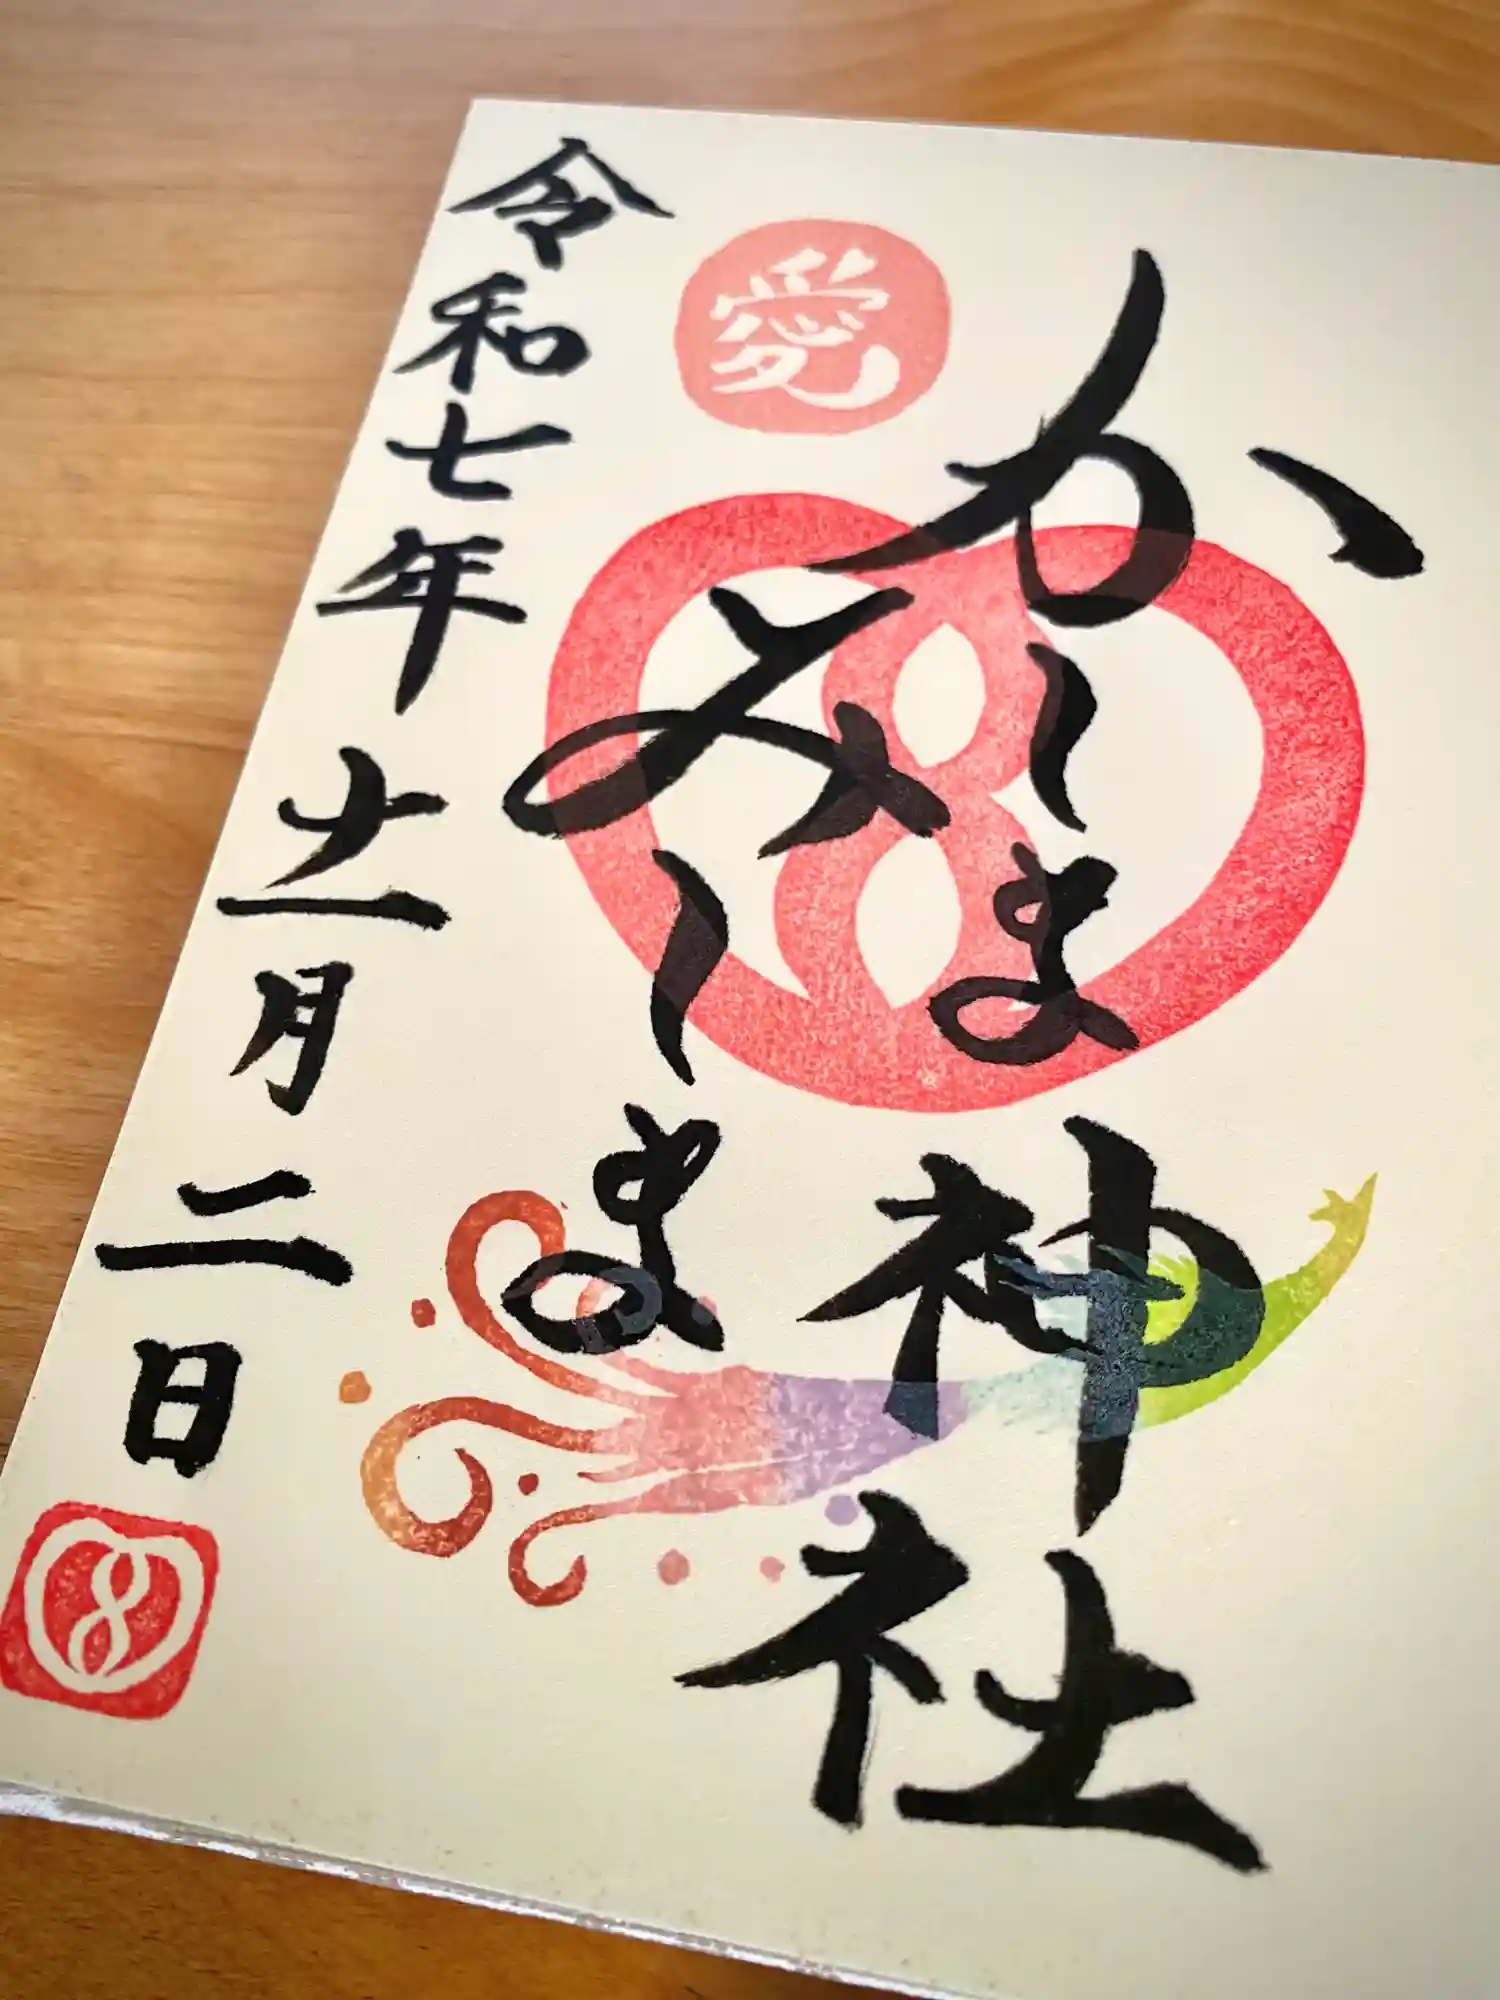 かーま
みーま
神社
愛
令和七年十一月二日